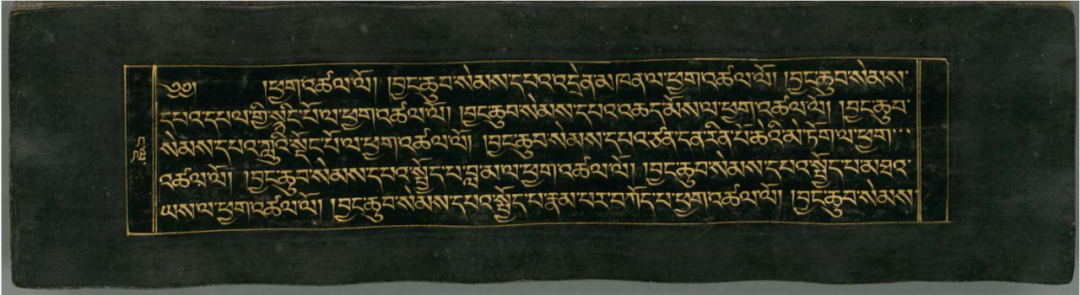 ༄༅། །ཕྱག་འཚལ་ལོ། །བྱང་ཆུབ་སེམས་དཔའ་འདྲེན་མཁན་ལ་ཕྱག་འཚལ་ལོ། །བྱང་ཆུབ་སེམས་
དཔའ་དཔལ་གྱི་སྙིང་པོ་ལ་ཕྱག་འཚལ་ལོ། །བྱང་ཆུབ་སེམས་དཔའ་འཆད་མོས་ལ་ཕྱག་འཚལ་ལོ། །བྱང་ཆུབ་
སེམས་དཔའ་ཀླུའི་སྡོང་པོ་ལ་ཕྱག་འཚལ་ལོ། །བྱང་ཆུབ་སེམས་དཔའ་ཙན་དན་དྲི་པ་ཆའི་མེ་ཏོག་ལ་ཕྱག་
འཚལ་ལོ། །བྱང་ཆུབ་སེམས་དཔའ་སྤྱོད་པ་བླ་མ་ལ་ཕྱག་འཚལ་ལོ། །བྱང་ཆུབ་སེམས་དཔའ་སྤྱོད་པ་མཐའ་
ཡས་ལ་ཕྱག་འཚལ་ལོ། །བྱང་ཆུབ་སེམས་དཔའ་སྤྱོད་པ་རྣམ་པར་བཀོད་པ་ཕྱག་འཚལ་ལོ། །བྱང་ཆུབ་སེམས་